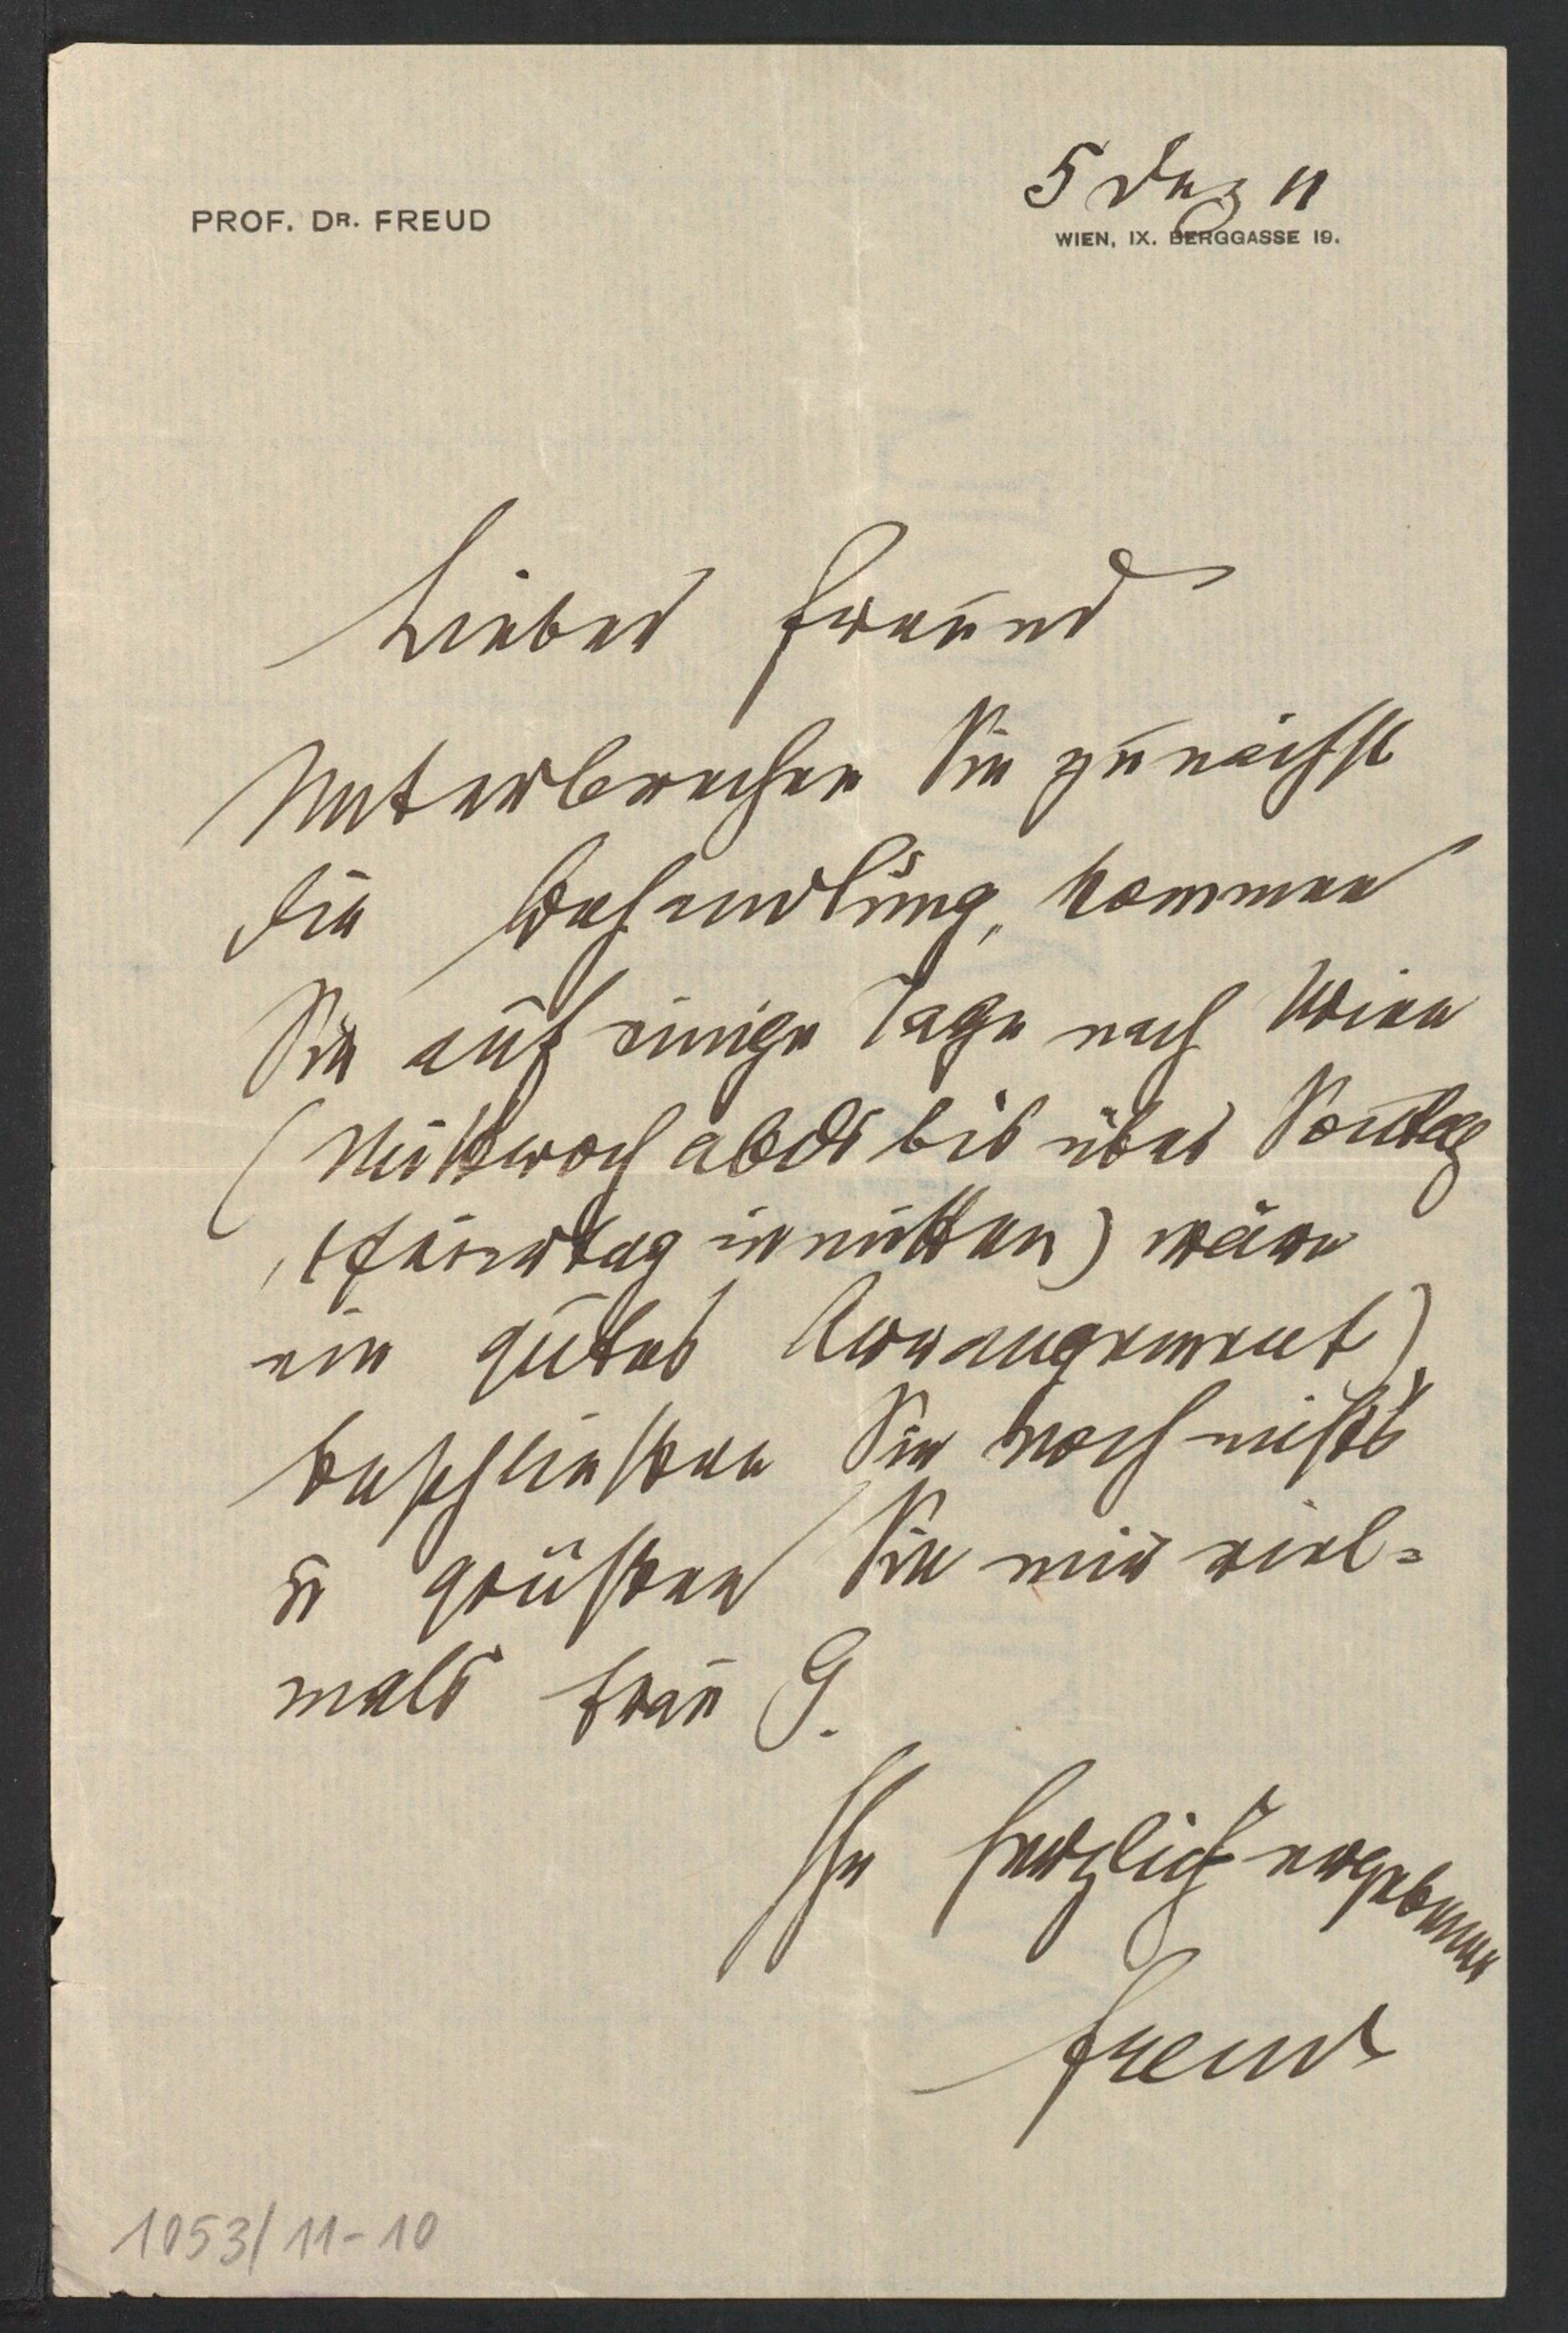 5 Dez 11
PROF. DR. FREUD
WIEN, IX. BERGGASSE 19.
Lieber Freund
Unterbrechen Sie zunächst
die Behandlung, kommen
Sie auf einige Tage nach Wien
(Mittwoch abds bis über Sonntag
, Feiertag inmitten) wäre
ein gutes Arrangement),
beschließen Sie noch nichts
u grüßen Sie mir viel-
mals Frau G.
Ihr herzlich ergebener
Freud
1053/11-10